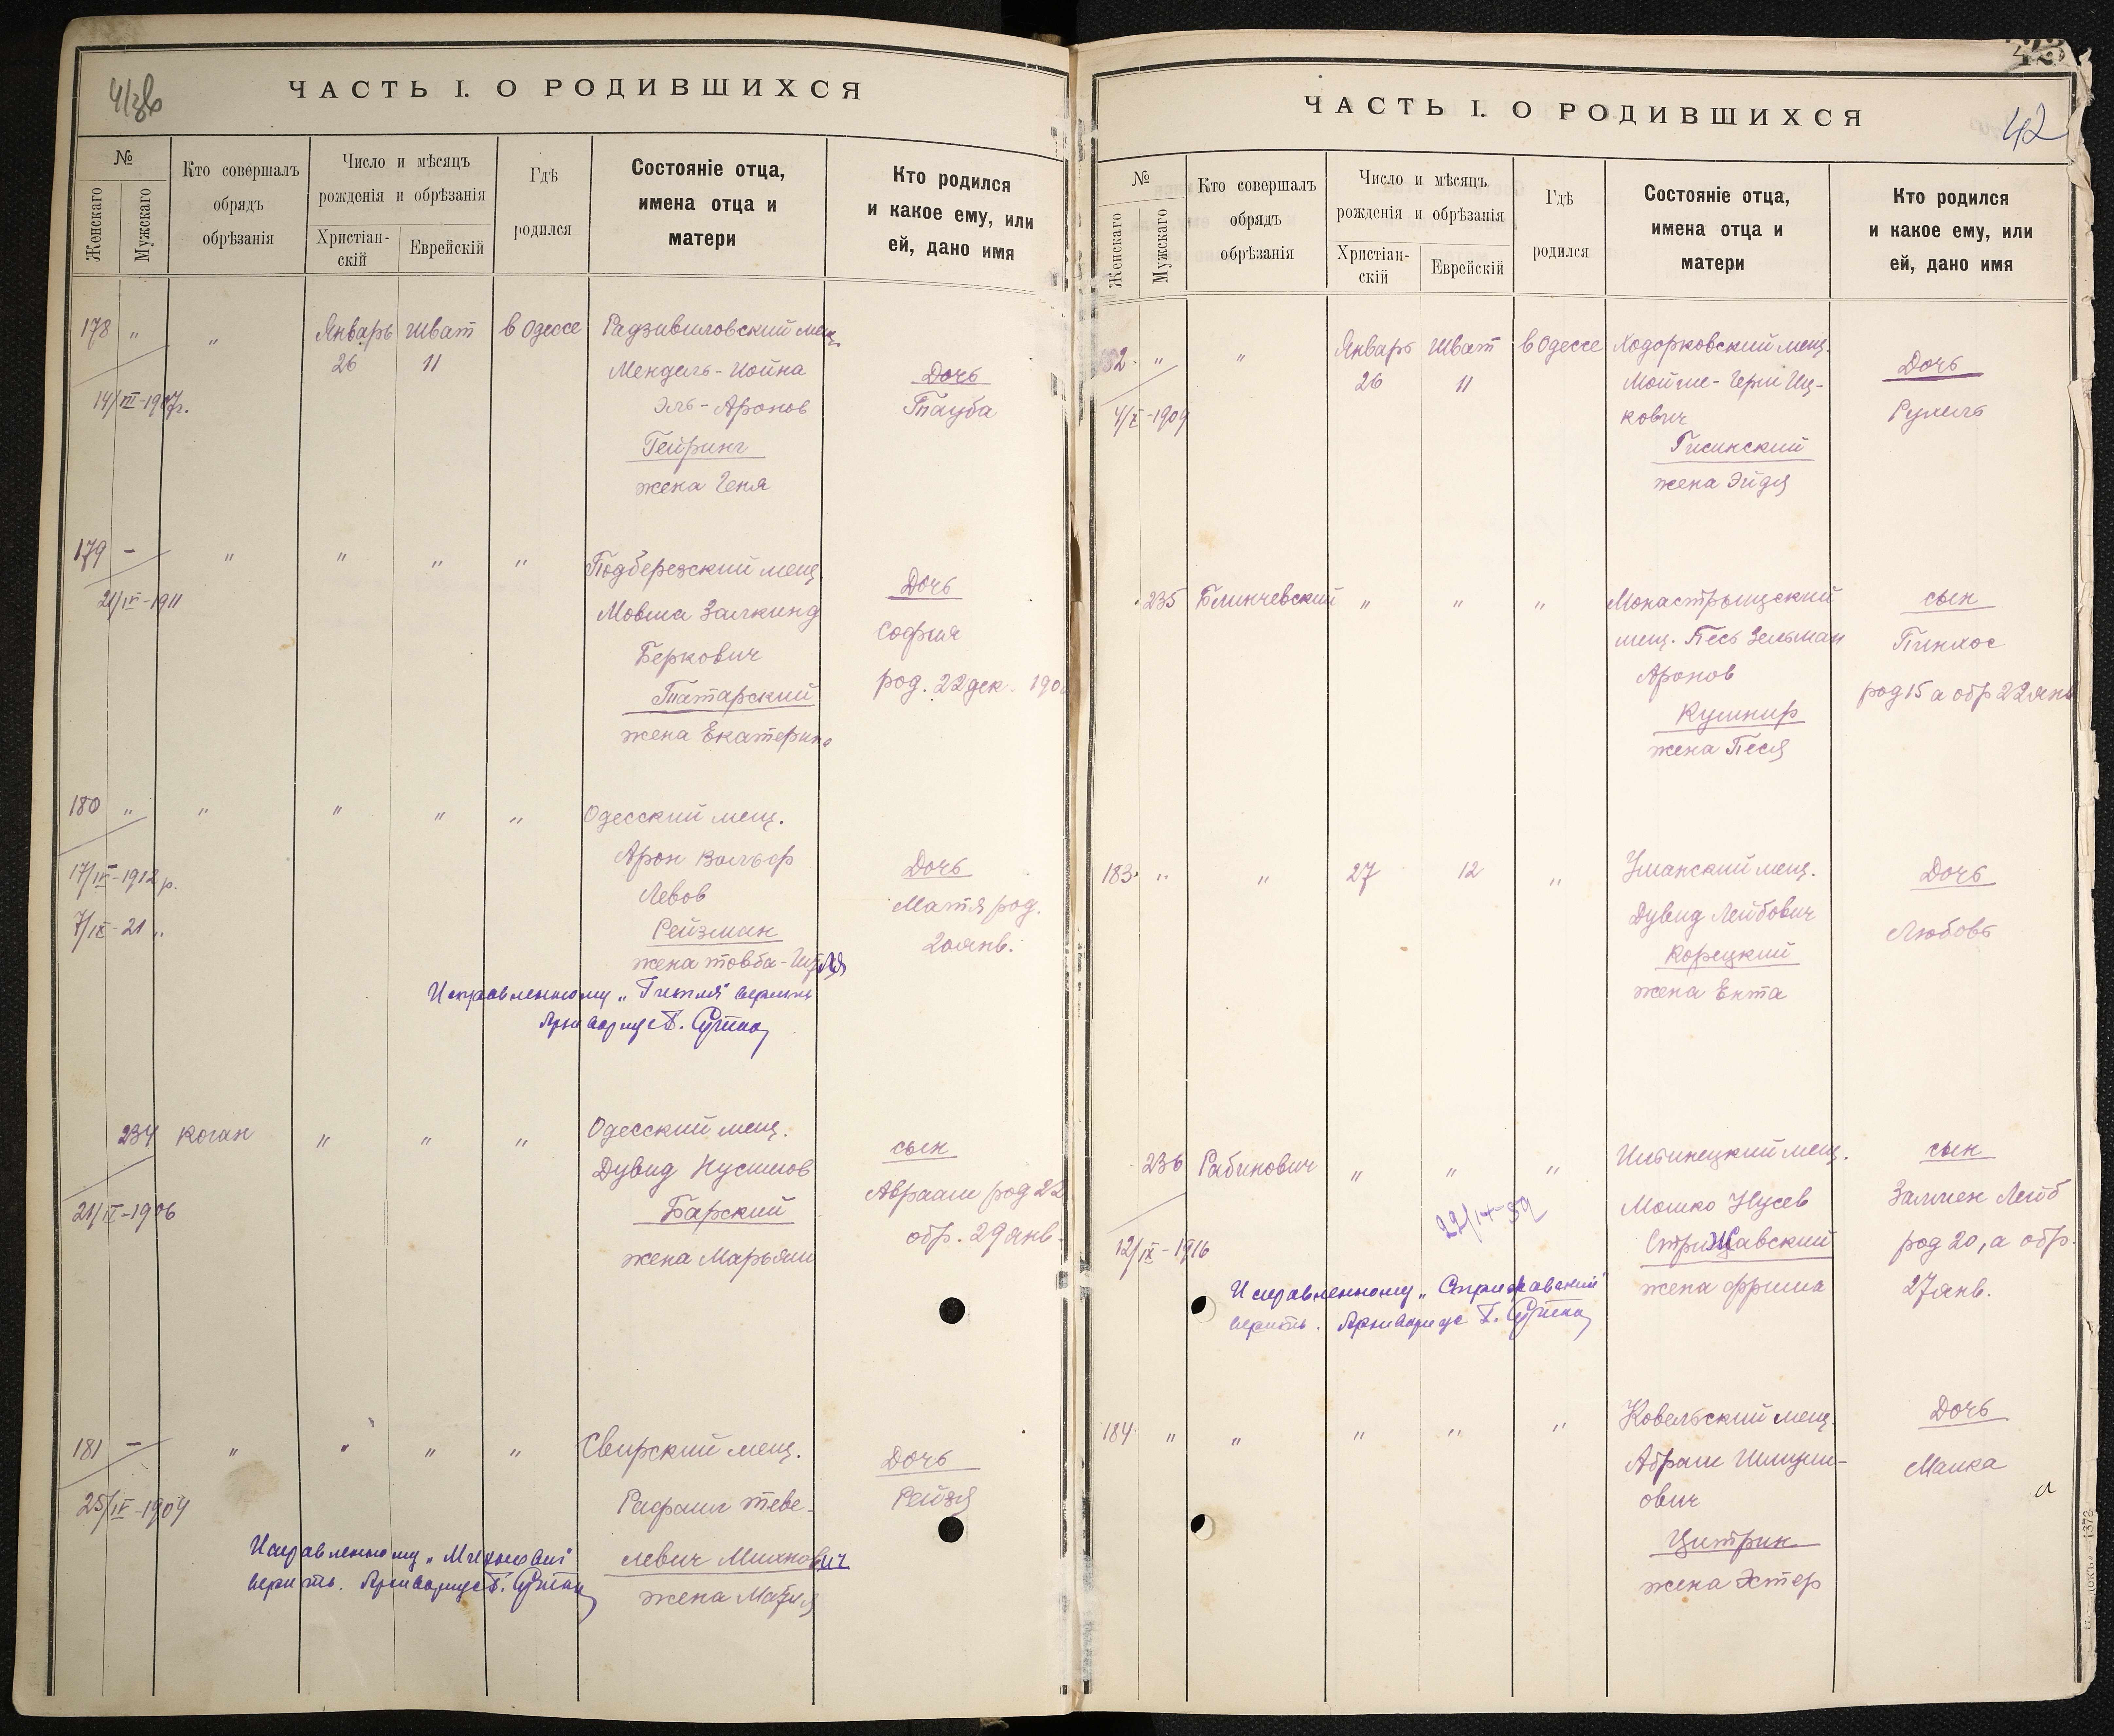 41зв
ЧАСТЬ I. О РОДИВШИХСЯ
№
Женскаго
Мужскаго
Кто совершалъ
обрядъ
обрѣзанія
Число и мѣсяцъ
рожденія и обрѣзанія
Христіан-
скій
Еврейскій
Гдѣ
родился
Состояніе отца,
имена отца и
матери
Кто родился
и какое ему, или
ей, дано имя
178 " " Январь Шват в Одессе Радзивиловский мещ.
26 11 Мендель-Иойна Дочь
14/III-1907г. Эль-Аронов Тауба
Гейринг
жена Геня
179 - " " " " Подберезский мещ.
21/IV-1911 Дочь
Мовша Залкинд София
Беркович род. 22 дек. 190
Татарский
жена Екатерина
180 " " " " " Одесский мещ.
Арон Вольф Дочь
17/IV-1912 р. Левов Матя род.
7/IX-21 " Рейзман 20 янв.
жена Товба-
Исправленному „Гитля" верить
Архивариус
234 Коган " " " Одесский мещ.
Дувид Нусимов сын
21/II-1906 Барский Авраам род 22
жена Марьям обр. 29 янв.
181 - " " " " Свирский мещ. Дочь
25/IV-1904 Рафаил Теве- Рейзя
левич Михнович
жена
Исправленному „Михнович"
верить. Архивариус
42
ЧАСТЬ I. О РОДИВШИХСЯ
42
№
Женскаго
Мужскаго
Кто совершалъ
обрядъ
обрѣзанія
Число и мѣсяцъ
рожденія и обрѣзанія
Христіан-
скій
Еврейскій
Гдѣ
родился
Состояніе отца,
имена отца и
матери
Кто родился
и какое ему, или
ей, дано имя
182 " " Январь Шват в Одессе Ходорковский мещ.
26 11 Мойше-Герш Иц- Дочь
4/X-1909 кович Рухель
Гисинский
жена Эйдя
235 Блинчевский " " " Монастрыщский сын
мещ. Песь Зельман Пинхос
Аронов род 15 а обр 22 янв
Кушнир
жена Песя
183 " " 27 12 " Уманский мещ. Дочь
Дувид Лейбович Любовь
Корецкий
жена Ента
236 Рабинович " " " Ильинецкий мещ. сын
Мошко Нусев Залмен Лейб
12/IX-1916 Стрижавский род 20, а обр.
жена Фрима 27 янв.
Исправленному „Стрижавский"
верить. Архивариус
184 " " " " " Ковельский мещ. Дочь
Абрам Шлиом- Малка
ович
Цитрин
жена Эстер